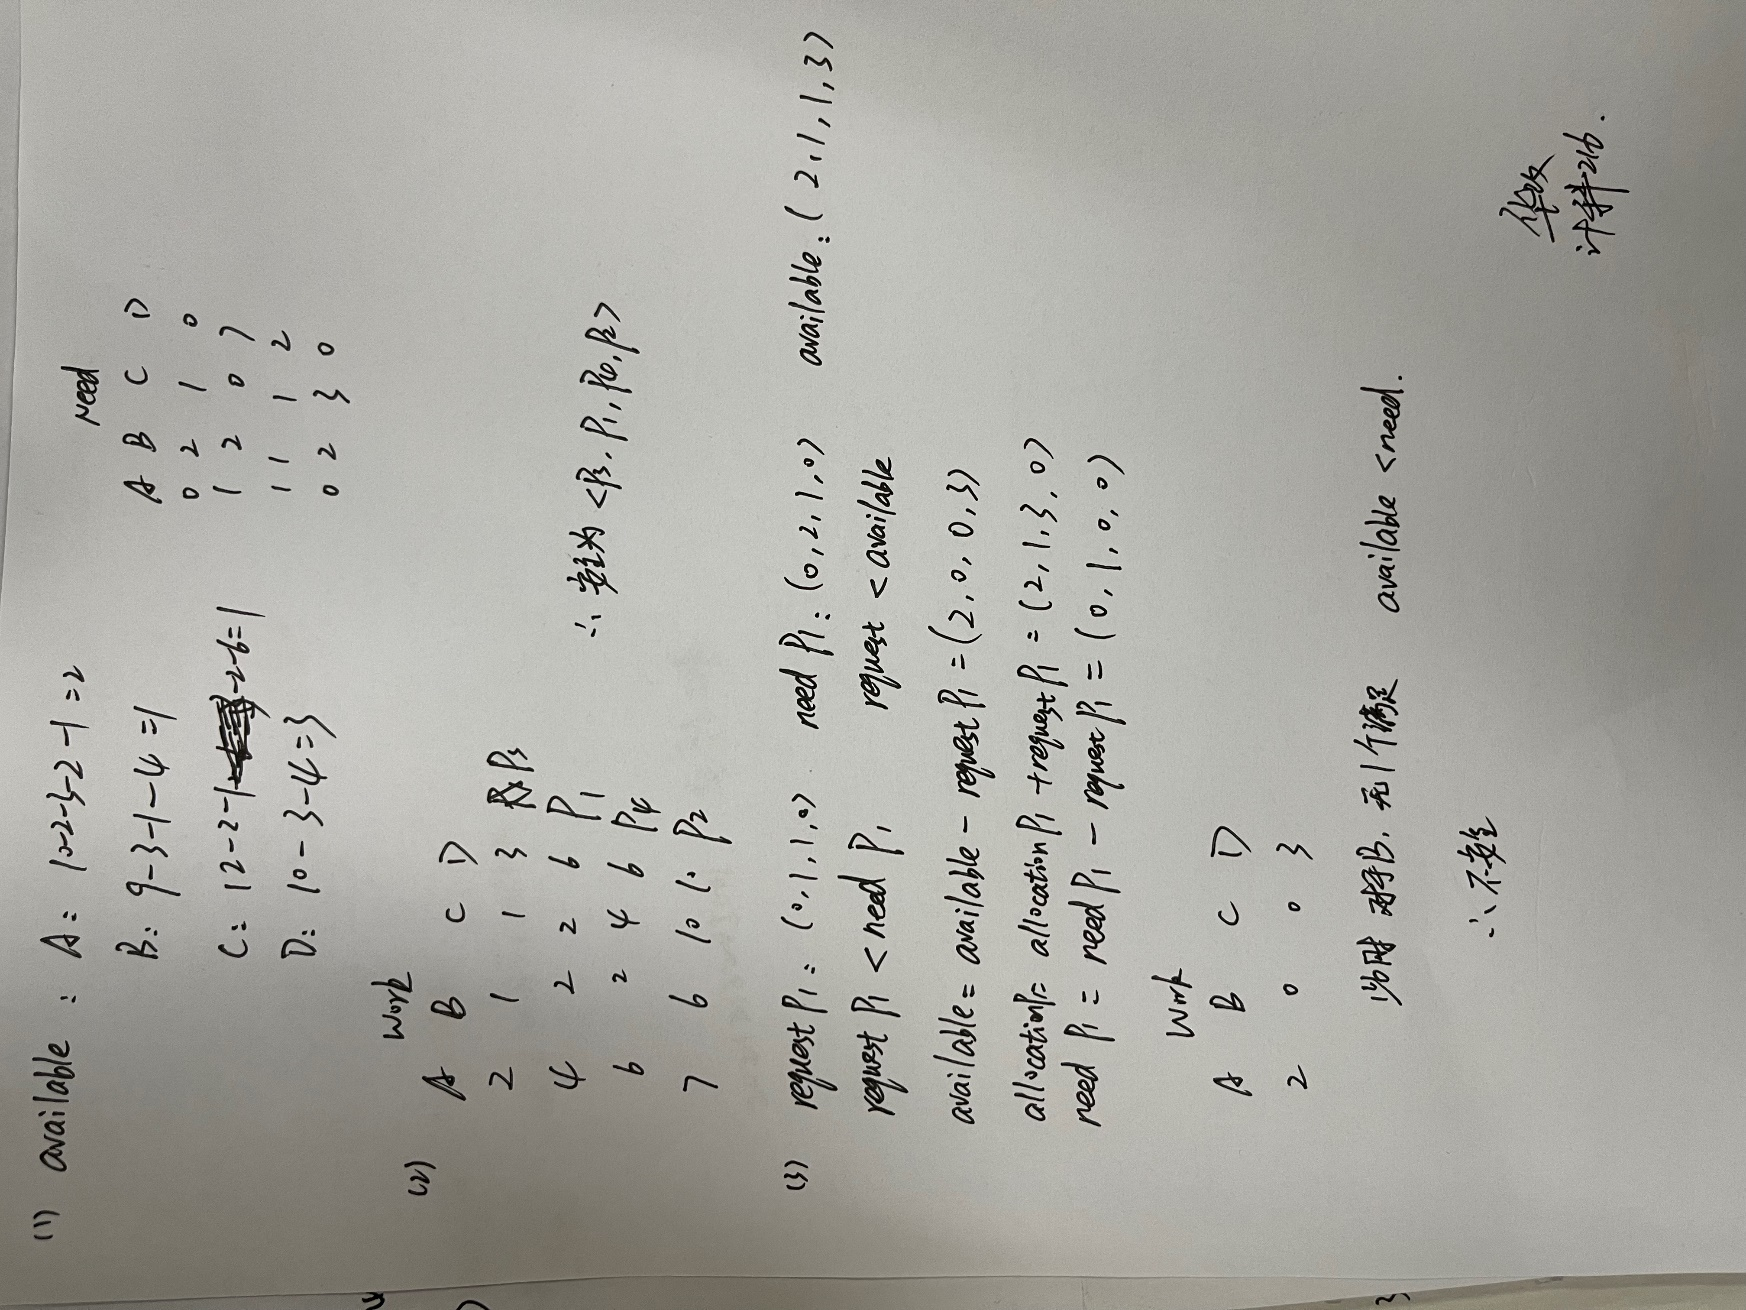 (1) available : A: 10-2-3-2-1=2
B: 9-3-1-4=1
C: 12-2-1-2-6=1
D: 10-3-4=3
Need
A B C D
0 2 1 0
1 2 0 7
1 1 1 2
0 2 3 0
(2) Work
A B C D
2 1 1 3 P3
4 2 2 6 P1
6 2 4 6 P4
7 6 10 P2
∴ 安全为 <P3, P1, P4, P2>
(3) request P1: (0,1,1,0) need P1: (0,2,1,0) available: (2,1,1,3)
request P1 < need P1 request < available
available = available - request P1 = (2,0,0,3)
allocation P1 = allocation P1 + request P1 = (2,1,3,0)
need P1 = need P1 - request P1 = (0,1,0,0)
Work
A B C D
2 0 0 3
此时 对于B, 无1个满足 available < need.
∴ 不安全